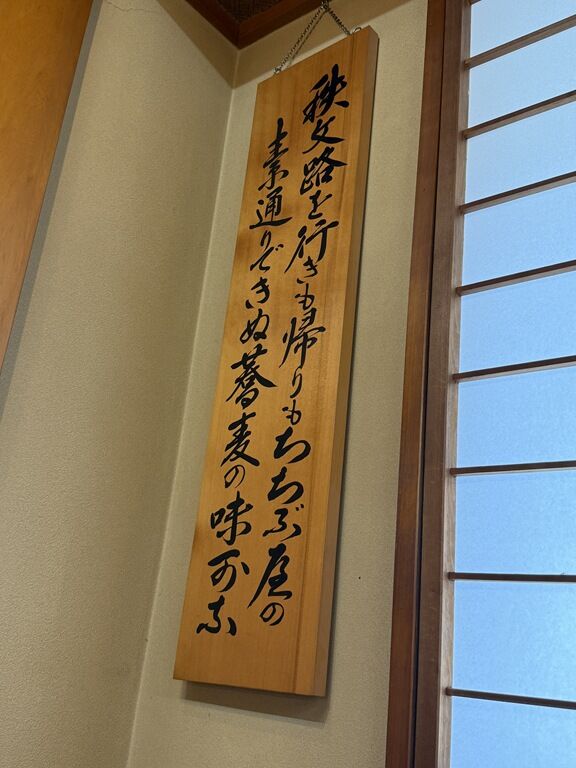 秩父路を行きも帰りもちちぶ屋の
素通りできぬ蕎麦の味可な